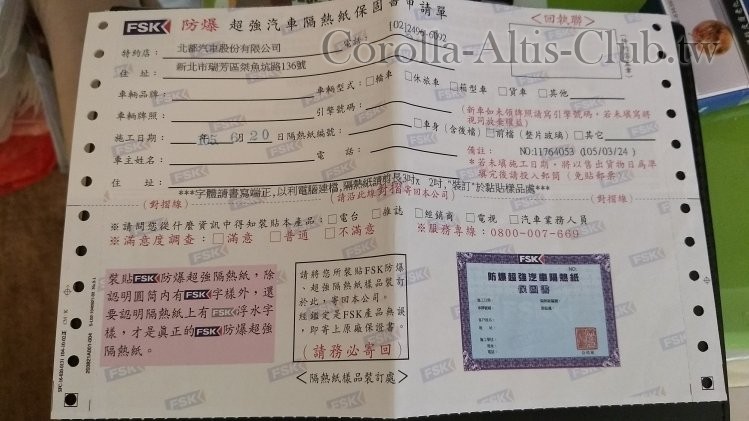 FSK 防爆 超強汽車隔熱紙保固書申請單
<回執聯>
Corolla-Altis-Club.tw
特約店: 北都汽車股份有限公司
電話:
住 址: 新北市瑞芳區傑魚坑路136號
車輛品牌:
車輛型式: □轎車 □休旅車 □箱型車 □貨車 □其他
車輛牌照:
引擎號碼:
(新車如未領牌照請填寫引擎號碼,若未填寫將
視同放棄權益)
施工日期: 105年 6月 20日
隔熱紙編號: □車身(含後檔) □前檔(整片玻璃) □其它
車主姓名:
電 話:
備註: NO:11764053 (105/03/24)
*若未填施工日期,將以售出貨物日為準
住 址:
填完後請投入郵筒(免貼郵票)
***字體請書寫端正,以利電腦建檔,隔熱紙請剪長3吋x 2吋,"裝訂"於黏貼樣品處***
(對摺線)
(請沿此線對摺寄回本公司)
(對摺線)
※請問您從什麼資訊中得知裝貼本產品: □電台 □雜誌 □經銷商 □電視 □汽車業務人員
※滿意度調查: □滿意 □普通 □不滿意
※服務專線: 0800-007-669
裝貼FSK防爆超強隔熱紙,除
認明圓筒內有FSK字樣外,還
要認明隔熱紙上有FSK浮水字
樣,才是真正的FSK防爆超強
隔熱紙。
請將您所裝貼FSK防爆
、超強隔熱紙樣品裝訂
於此,寄回本公司。
經鑑定是FSK產品無誤
,即寄上原廠保證書。
(請務必寄回)
<隔熱紙樣品裝訂處>
FSK
NO:
防爆超強汽車隔熱紙
保固書